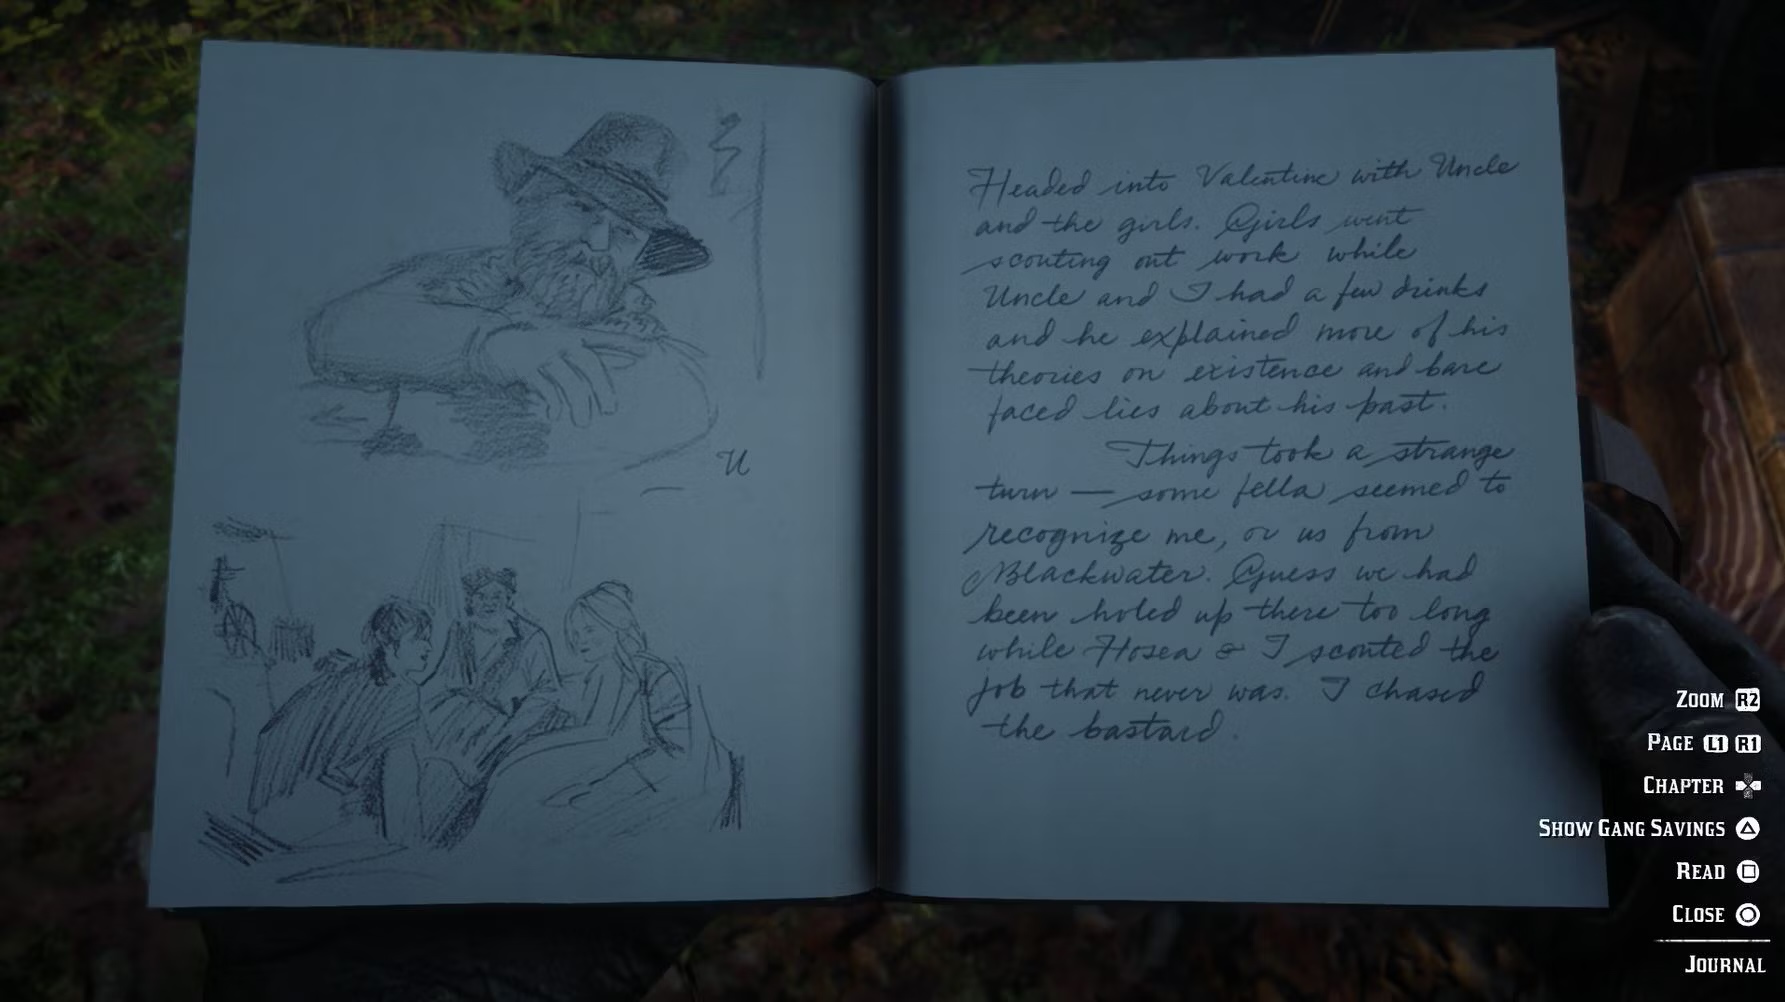 U
Headed into Valentine with Uncle
and the girls. Girls went
scouting out work while
Uncle and I had a few drinks
and he explained more of his
theories on existence and bare
faced lies about his past.
Things took a strange
turn — some fella seemed to
recognize me, or us from
Blackwater. Guess we had
been holed up there too long
while Hosea & I scouted the
job that never was. I chased
the bastard.
ZOOM R2
PAGE L1 R1
CHAPTER
SHOW GANG SAVINGS
READ
CLOSE
JOURNAL